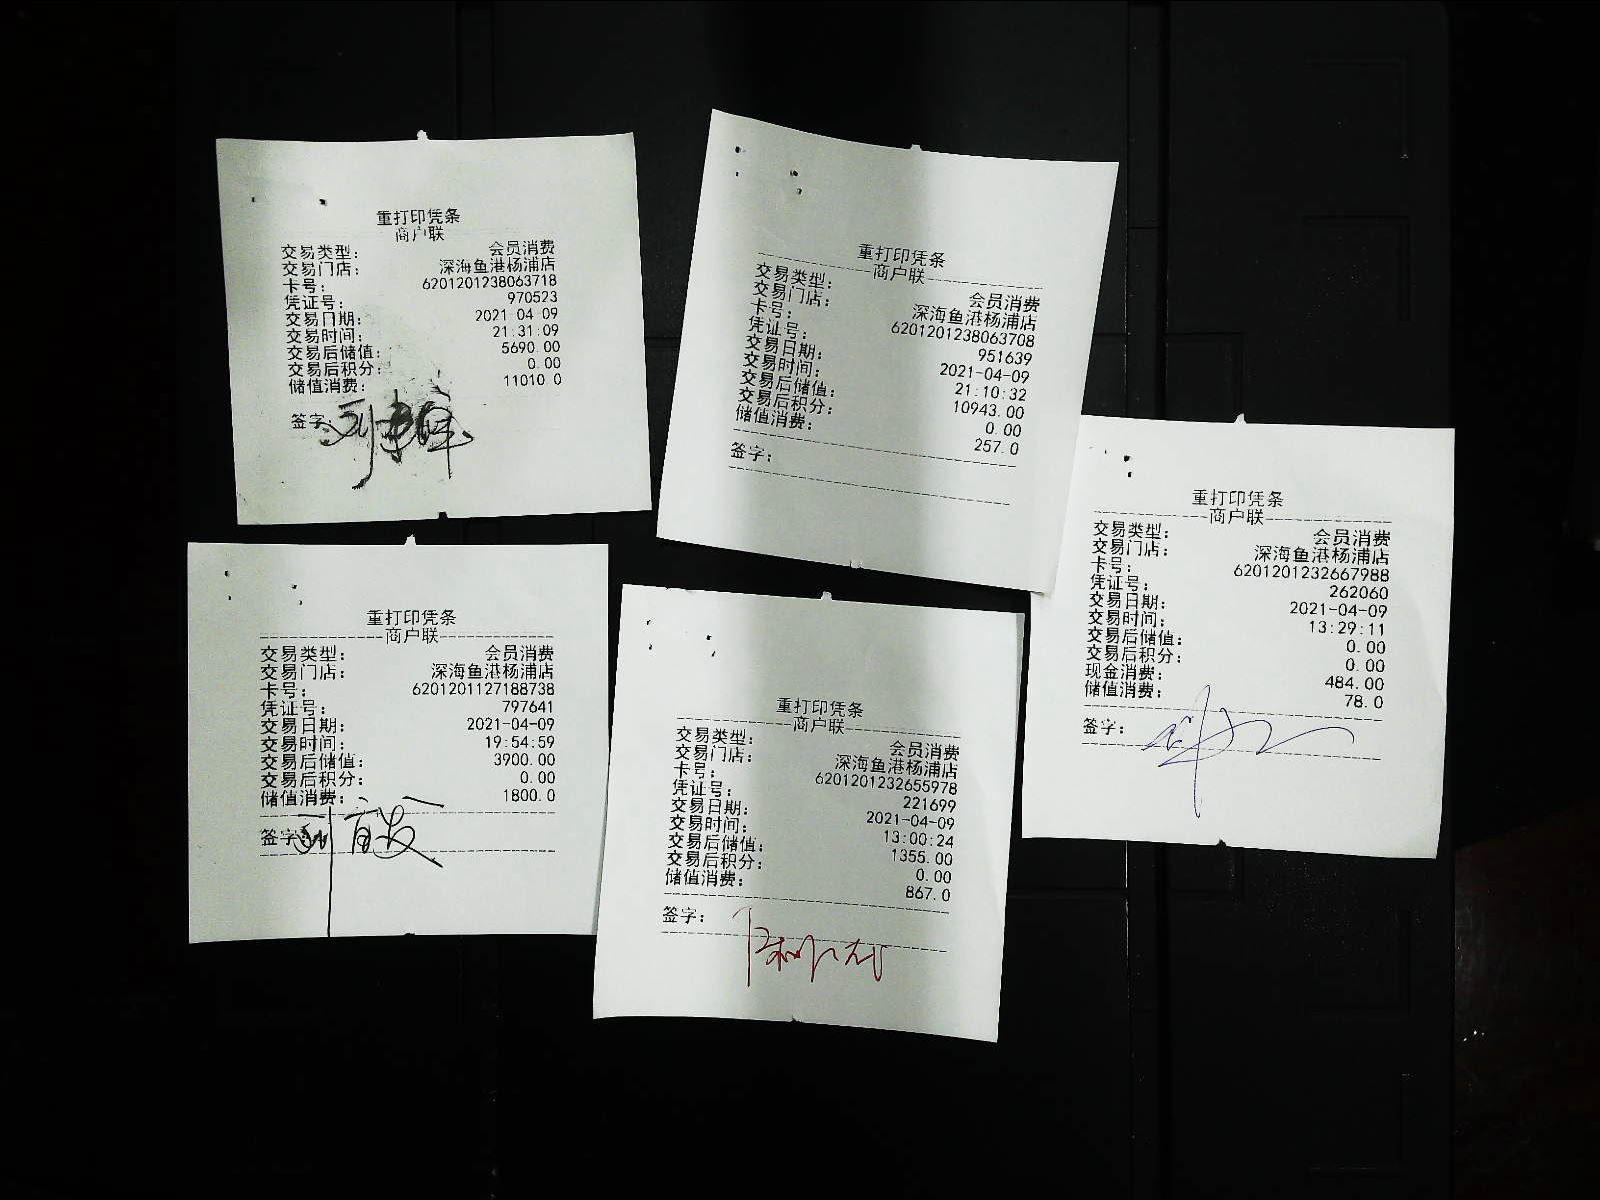 重打印凭条
商户联
交易类型： 会员消费
交易门店： 深海鱼港杨浦店
卡号： 6201201238063718
凭证号： 970523
交易日期： 2021-04-09
交易时间： 21:31:09
交易后储值： 5690.00
交易后积分： 0.00
储值消费： 11010.0
签字
重打印凭条
商户联
交易类型： 会员消费
交易门店： 深海鱼港杨浦店
卡号： 6201201238063708
凭证号： 951639
交易日期： 2021-04-09
交易时间： 21:10:32
交易后储值： 10943.00
交易后积分： 0.00
储值消费： 257.0
签字：
重打印凭条
商户联
交易类型： 会员消费
交易门店： 深海鱼港杨浦店
卡号： 6201201232667988
凭证号： 262060
交易日期： 2021-04-09
交易时间： 13:29:11
交易后储值： 0.00
交易后积分： 0.00
现金消费： 484.00
储值消费： 78.0
签字：
重打印凭条
商户联
交易类型： 会员消费
交易门店： 深海鱼港杨浦店
卡号： 6201201127188738
凭证号： 797641
交易日期： 2021-04-09
交易时间： 19:54:59
交易后储值： 3900.00
交易后积分： 0.00
储值消费： 1800.0
签字
重打印凭条
商户联
交易类型： 会员消费
交易门店： 深海鱼港杨浦店
卡号： 6201201232655978
凭证号： 221699
交易日期： 2021-04-09
交易时间： 13:00:24
交易后储值： 1355.00
交易后积分： 0.00
储值消费： 867.0
签字：